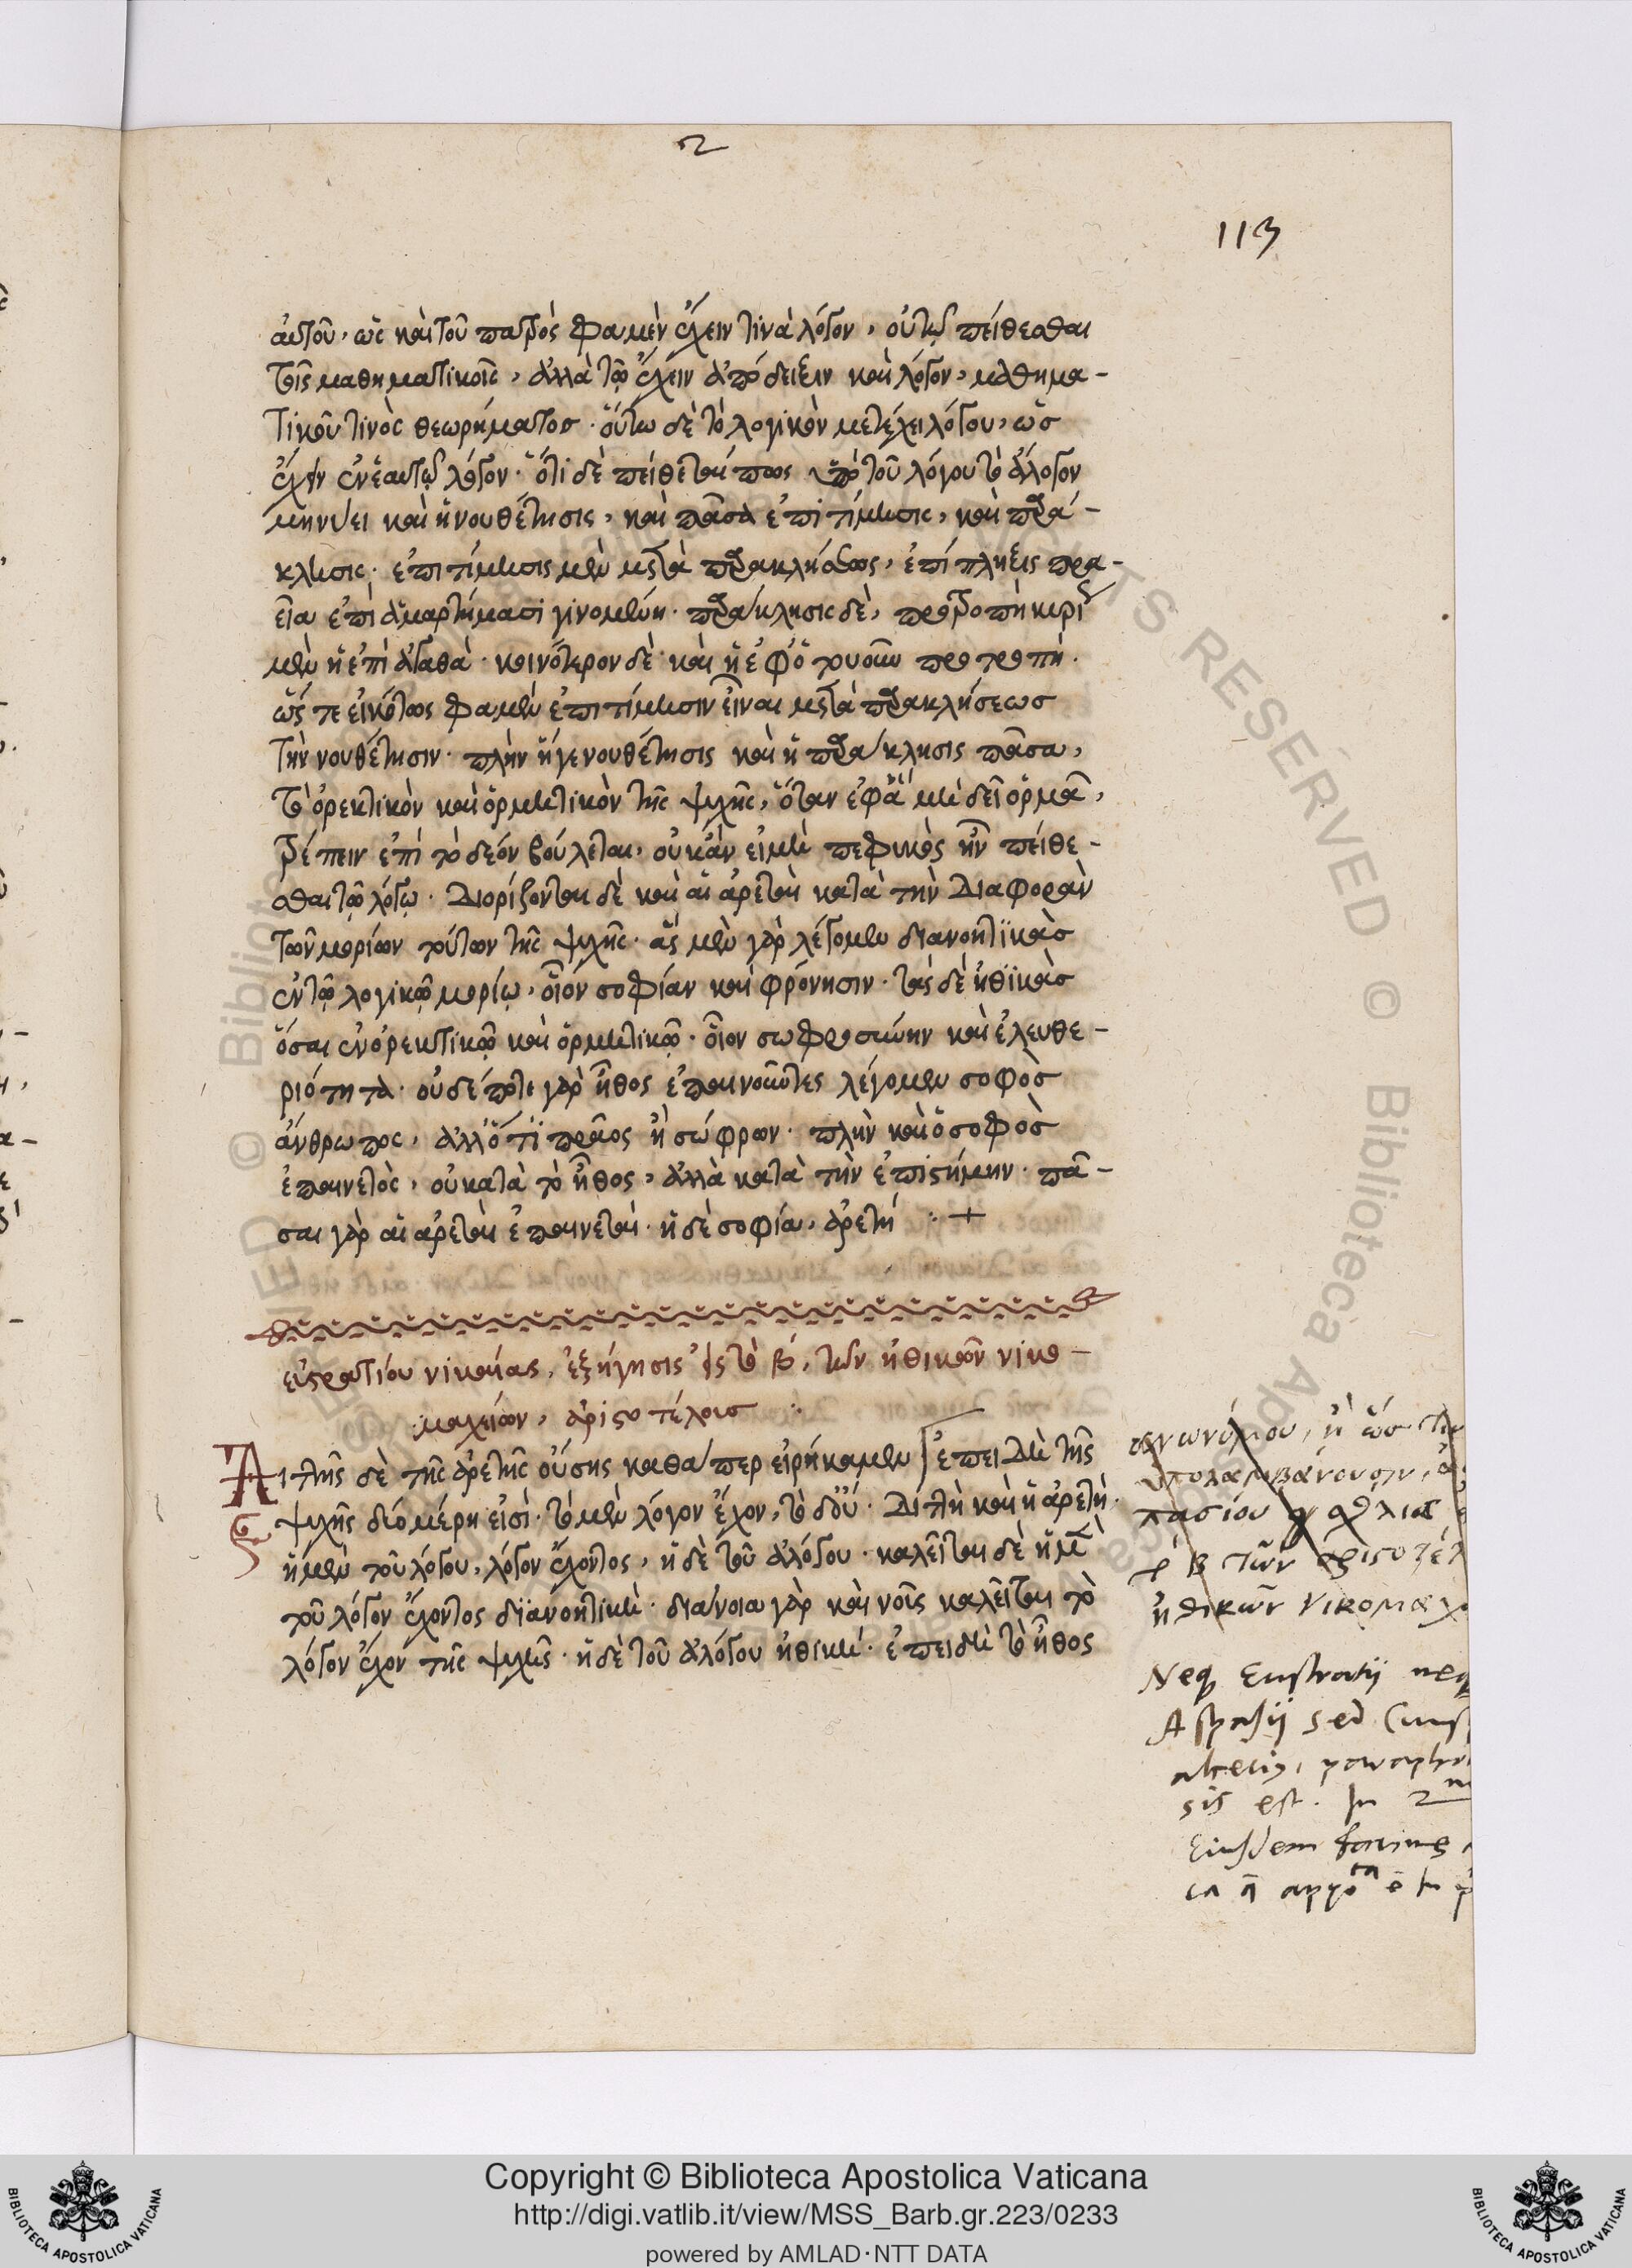 2
113
αὐτοῦ, ὡς καὶ τοῦ πατρὸς φαμὲν ἔχειν τινὰ λόγον, οὐ τῷ πείθεσθαι
τοῖς μαθηματικοῖς, ἀλλὰ τῷ ἔχειν ἀπόδειξιν καὶ λόγον, μαθημα-
τικοῦ τινὸς θεωρήματος. οὕτω δὲ τὸ λογικὸν μετέχει λόγου, ὡς
ἔχον ἐν ἑαυτῷ λόγον. ὅτι δὲ πείθεταί πως ὑπὸ τοῦ λόγου τὸ ἄλογον
μηνύει καὶ ἡ νουθέτησις, καὶ πᾶσα ἐπιτίμησις, καὶ παρά-
κλησις. ἐπιτίμησις μὲν μετὰ παρακλήσεως, ἐπίπληξις πρα-
εῖα ἐπὶ ἁμαρτήμασι γινομένη. παράκλησις δὲ, προτροπὴ
μὲν ἡ ἐπὶ ἀγαθὰ. κοινότερον δὲ καὶ ἡ ἐφ' ὁτουοῦν προτροπή.
ὥστε εἰκότως φαμὲν ἐπιτίμησιν εἶναι μετὰ παρακλήσεως
τὴν νουθέτησιν. πλὴν ἥ γε νουθέτησις καὶ ἡ παράκλησις πᾶσα,
τὸ ὀρεκτικὸν καὶ ὁρμητικὸν τῆς ψυχῆς, ὅταν ἐφ' ἃ μὴ δεῖ ὁρμᾶ,
τρέπειν ἐπὶ τὸ δέον βούλεται, οὐκ ἂν εἰ μὴ πεφυκὸς ἦν πείθε-
σθαι τῷ λόγῳ. Διορίζονται δὲ καὶ αἱ ἀρεταὶ κατὰ τὴν διαφορὰν
τῶν μορίων τούτων τῆς ψυχῆς. ἃς μὲν γὰρ λέγομεν διανοητικὰς
ἐν τῷ λογικῷ μορίῳ, οἷον σοφίαν καὶ φρόνησιν. τὰς δὲ ἠθικὰς
ὅσαι ἐν ὀρεκτικῷ καὶ ὁρμητικῷ. οἷον σωφροσύνην καὶ ἐλευθε-
ριότητα. οὐδέποτε γὰρ ἦθος ἐπαινοῦντες λέγομεν σοφὸς
ἄνθρωπος, ἀλλ' ὅτι πρᾶος ἢ σώφρων. πλὴν καὶ ὁ σοφὸς
ἐπαινετὸς, οὐ κατὰ τὸ ἦθος, ἀλλὰ κατὰ τὴν ἐπιστήμην. πᾶ-
σαι γὰρ αἱ ἀρεταὶ ἐπαινεταί. ἡ δὲ σοφία, ἀρετή :+
εὐστρατίου νικαίας, ἐξήγησις εἰς τὸ β', τῶν ἠθικῶν νικο-
μαχείων, ἀριστοτέλους :
Διττῆς δὲ τῆς ἀρετῆς οὔσης καθάπερ εἰρήκαμεν ἐπειδὴ τῆς
ψυχῆς δύο μέρη εἰσὶ. τὸ μὲν λόγον ἔχον, τὸ δ' οὔ. Διττὴ καὶ ἡ ἀρετή.
ἡ μὲν τοῦ λόγου, λόγον ἔχοντος, ἡ δὲ τοῦ ἀλόγου. καλεῖται δὲ ἡ μὲν
τοῦ λόγον ἔχοντος διανοητική. διάνοια γὰρ καὶ νοῦς καλεῖται τὸ
λόγον ἔχον τῆς ψυχῆς. ἡ δὲ τοῦ ἀλόγου ἠθική. ἐπειδὴ τὸ ἦθος
ἀνωνύμου, ἢ ὥς τιν
ὑπολαμβάνουσιν, ἀ
πασίου
β τῶν ἀριστοτέλ
ἠθικῶν Νικομαχ
Neq Eustratij neq
Aspasij sed Cuius
alterius paraphra
sis est. In 2
Eiusdem
Copyright © Biblioteca Apostolica Vaticana
http://digi.vatlib.it/view/MSS_Barb.gr.223/0233
powered by AMLAD·NTT DATA
BIBLIOTECA APOSTOLICA VATICANA
BIBLIOTECA APOSTOLICA VATICANA